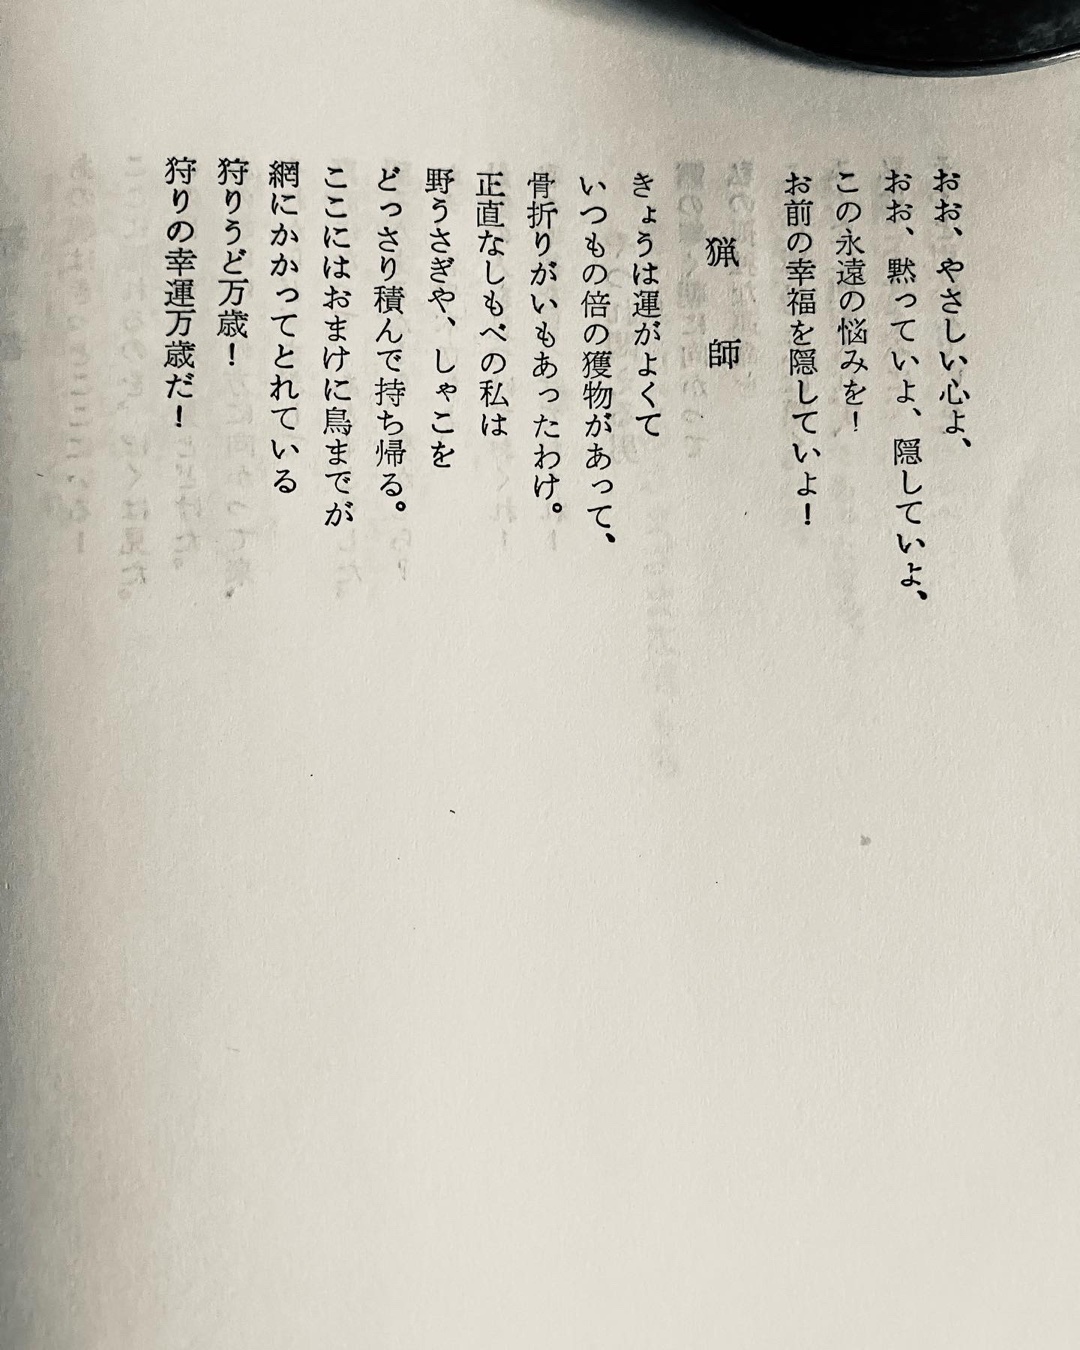 おお、やさしい心よ、
おお、黙っていよ、隠していよ、
この永遠の悩みを！
お前の幸福を隠していよ！
猟師
きょうは運がよくて
いつもの倍の獲物があって、
骨折りがいもあったわけ。
正直なしもべの私は
野うさぎや、しゃこを
どっさり積んで持ち帰る。
ここにはおまけに鳥までが
網にかかってとれている
狩りうど万歳！
狩りの幸運万歳だ！